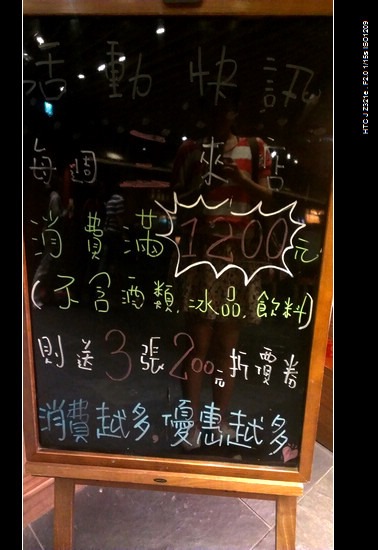 活動快訊
每週 來店
消費滿1200元
(不含酒類.冰品.飲料)
則送3張200元折價券
消費越多,優惠越多
HTC J Z321e . F2.0 1/15s ISO1209